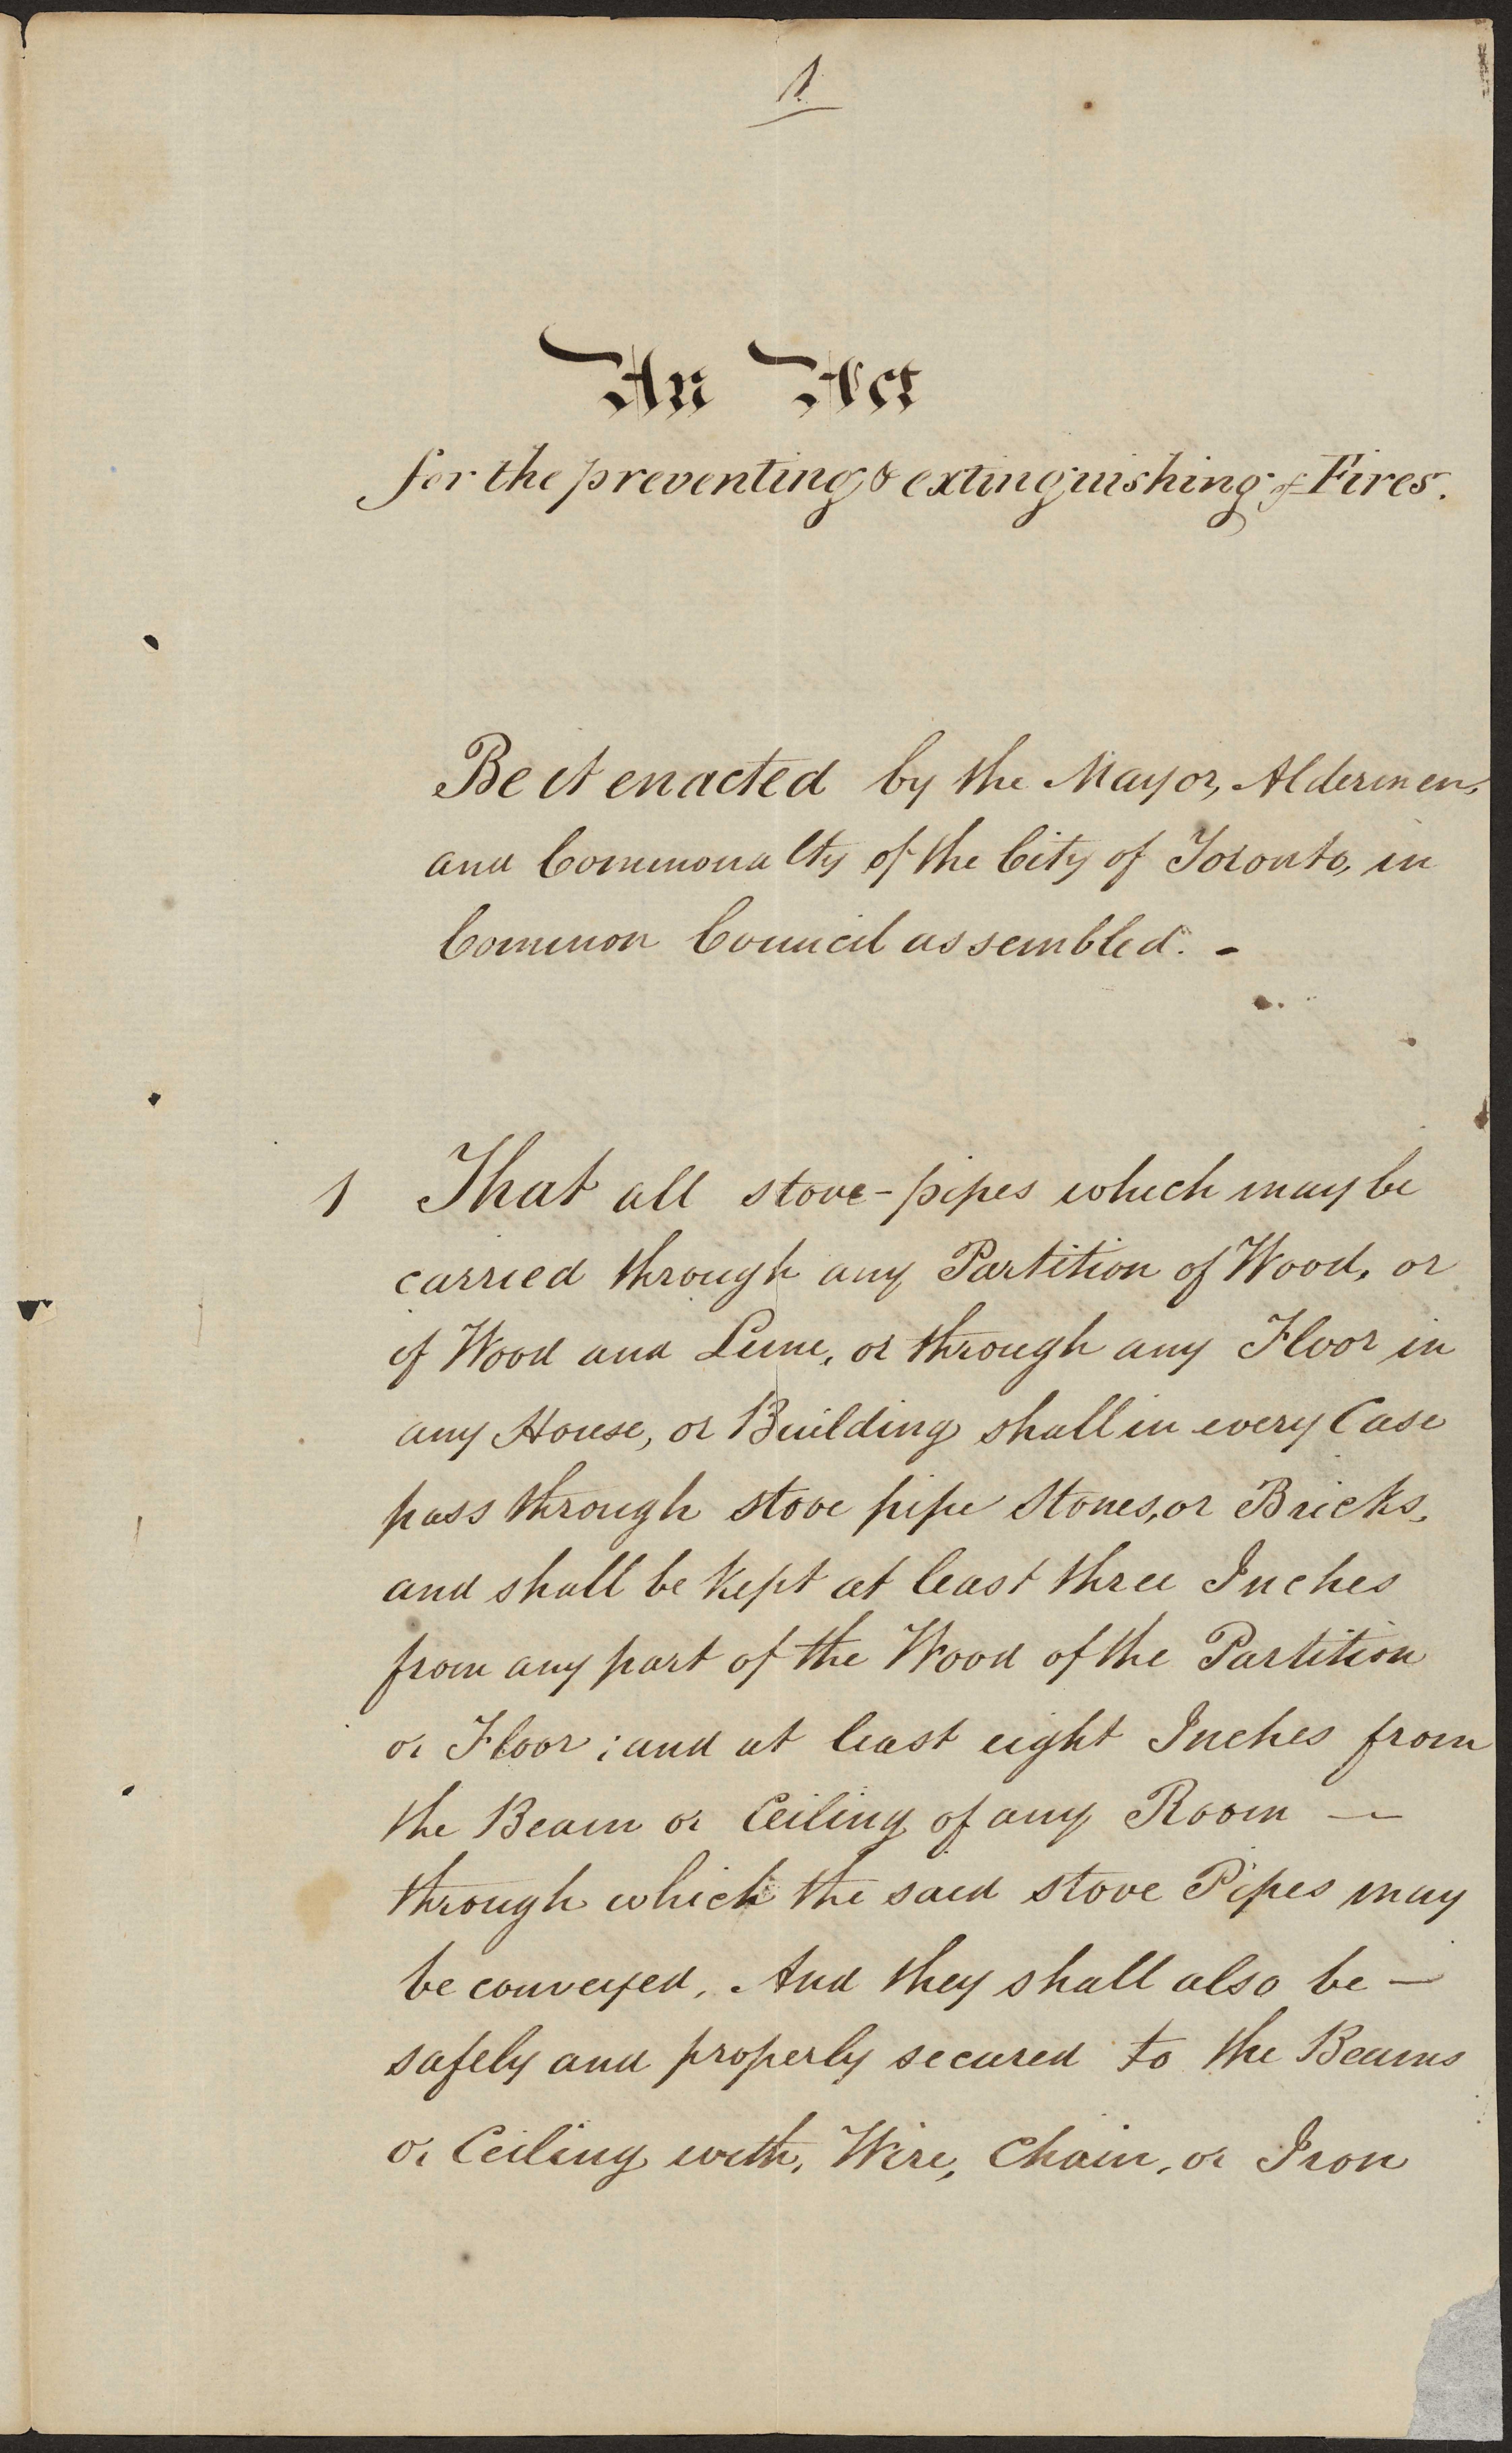 1
An Act
for the preventing & extinguishing of Fires.
Be it enacted by the Mayor, Aldermen,
and Commonalty of the City of Toronto, in
Common Council assembled. -
1 That all stove-pipes which may be
carried through any Partition of Wood, or
of Wood and Lime, or through any Floor in
any House, or Building shall in every Case
pass through stove pipe Stones, or Bricks,
and shall be kept at least three Inches
from any part of the Wood of the Partition
or Floor; and at least eight Inches from
the Beam or Ceiling of any Room —
through which the said stove Pipes may
be conveyed, And they shall also be —
safely and properly secured to the Beams
or Ceiling with, Wire, Chain, or Iron